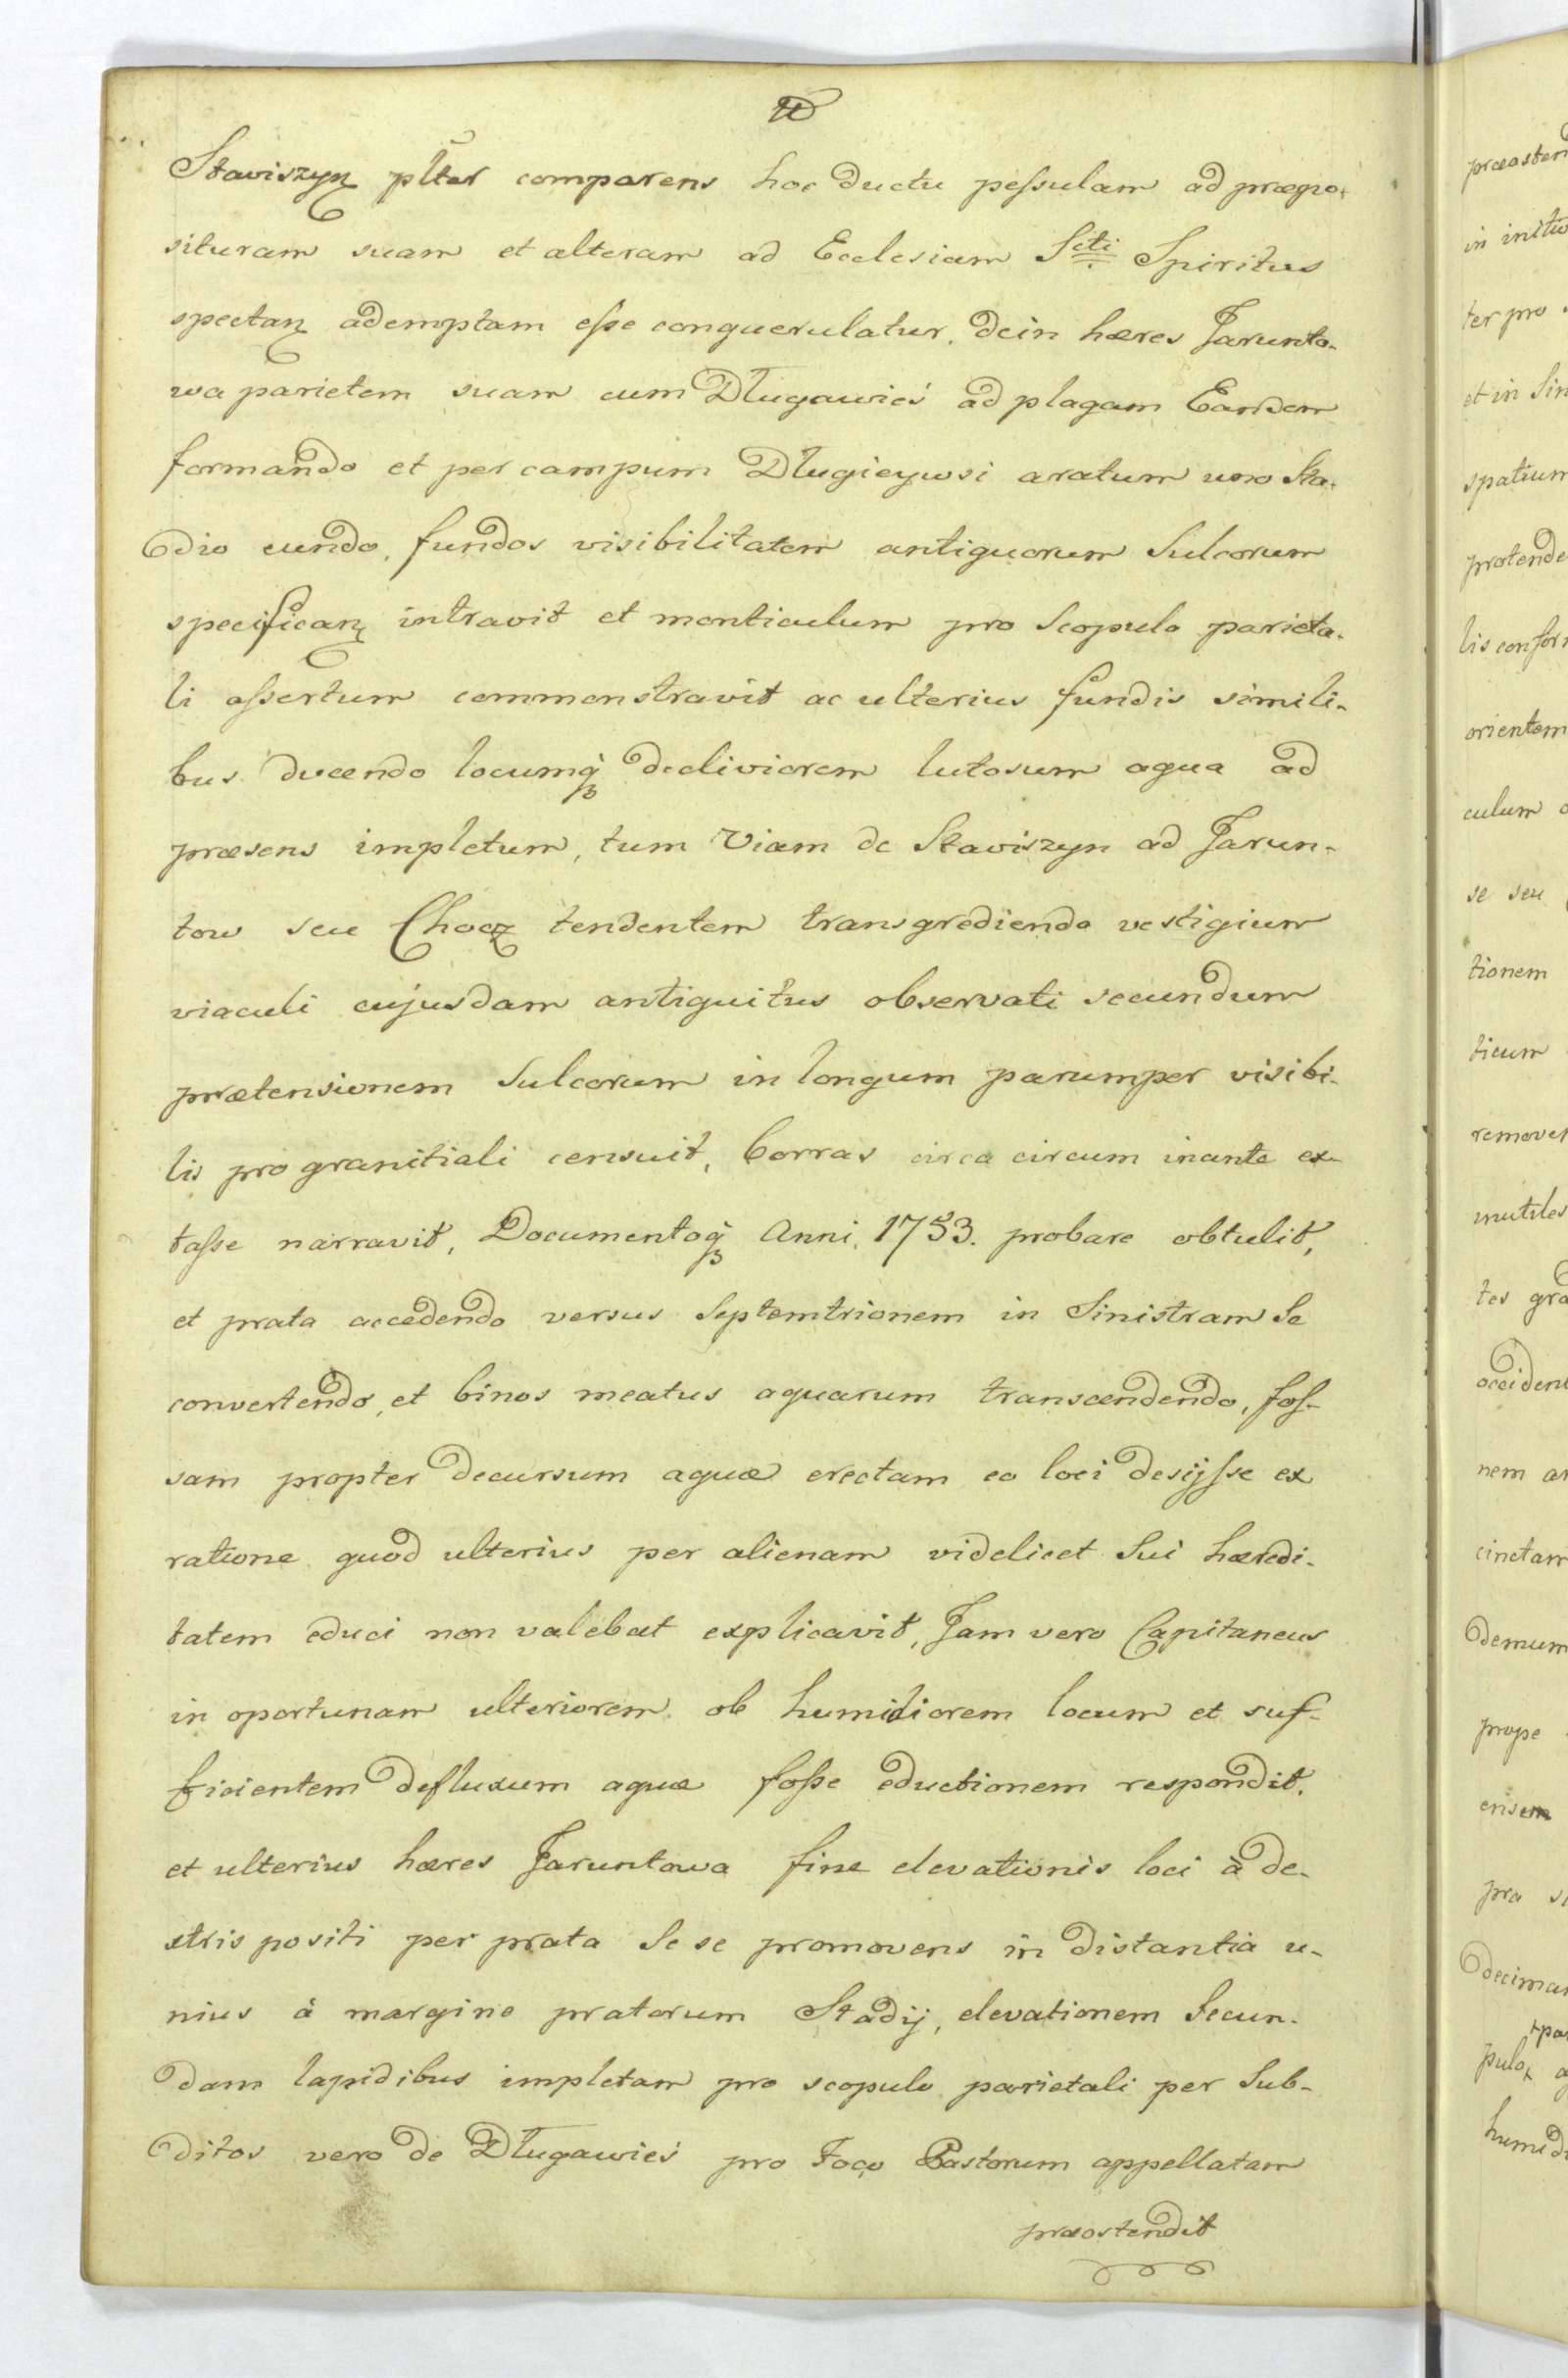 Stawiszyn plter comparens hoc ductu pessulam ad præpo-
situram suam et alteram ad Ecclesiam Scti Spiritus
spectan ademptam esse conquerulatur. dein hæres Jarunto-
wa parietem suam cum Długawieś ad plagam Eandem
formando et per campum Długieywsi aratum uno Sta-
dio eundo, fundos visibilitatem antiquorum Sulcorum
specifican intravit et monticulum pro Scopulo parieta-
li assertum commonstravit ac ulterius fundis simili-
bus ducendo locumq decliviorem lutosum aqua ad
præsens impletum, tum Viam de Stawiszyn ad Jarun-
tow seu Chocz tendentem transgrediendo vestigium
viaculi cujusdam antiquitus observati secundum
prætensionem Sulcorum in longum parumper visibi-
lis pro granitiali censuit, borras circa circum inante ex-
tasse narravit, Documentoq Anni 1753. probare obtulit,
et prata accedendo versus Septemtrionem in Sinistram Se
convertendo, et binos meatus aquarum transcendendo, fos-
sam propter decursum aquæ erectam eo loci desijsse ex
ratione quod ulterius per alienam videlicet Sui hæredi-
tatem educi non valebat explicavit, Jam vero Capitaneus
in oportunam ulteriorem ob humidiorem locum et suf-
ficientem defluxum aquæ fosse eductionem respondit.
et ulterius hæres Jaruntowa fine elevationis loci à de-
xtris positi per prata Se se promovens in distantia u-
nius à margine pratorum Stadij, elevationem Secun-
dam lapidibus impletam pro scopulo parietali per Sub-
ditos vero de Długawieś pro Foco Pastorum appellatam
præostendit